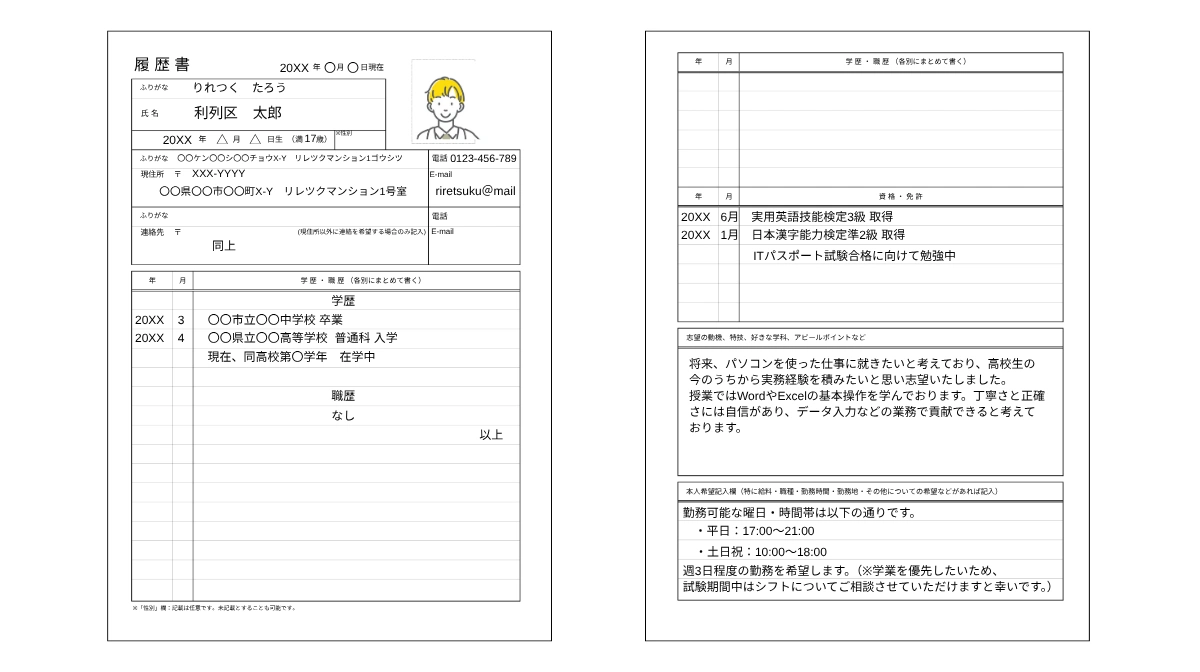 履歴書
20XX 年 〇月 〇 日現在
ふりがな りれつく たろう
氏名 利列区 太郎
20XX 年 △ 月 △ 日生 (満 17歳) ※性別
ふりがな 〇〇ケン〇〇シ〇〇チョウX-Y リレツクマンション1ゴウシツ
電話 0123-456-789
現住所 〒 XXX-YYYY
E-mail
〇〇県〇〇市〇〇町X-Y リレツクマンション1号室
riretsuku@mail
ふりがな
電話
連絡先 〒 (現住所以外に連絡を希望する場合のみ記入)
E-mail
同上
年 月 学歴・職歴(各別にまとめて書く)
学歴
20XX 3 〇〇市立〇〇中学校 卒業
20XX 4 〇〇県立〇〇高等学校 普通科 入学
現在、同高校第〇学年 在学中
職歴
なし
以上
※「性別」欄:記載は任意です。未記載とすることも可能です。
年 月 学歴・職歴(各別にまとめて書く)
年 月 資格・免許
20XX 6月 実用英語技能検定3級 取得
20XX 1月 日本漢字能力検定準2級 取得
ITパスポート試験合格に向けて勉強中
志望の動機、特技、好きな学科、アピールポイントなど
将来、パソコンを使った仕事に就きたいと考えており、高校生の
今のうちから実務経験を積みたいと思い志望いたしました。
授業ではWordやExcelの基本操作を学んでおります。丁寧さと正確
さには自信があり、データ入力などの業務で貢献できると考えて
おります。
本人希望記入欄(特に給料・職種・勤務時間・勤務地・その他についての希望などがあれば記入)
勤務可能な曜日・時間帯は以下の通りです。
・平日:17:00〜21:00
・土日祝:10:00〜18:00
週3日程度の勤務を希望します。(※学業を優先したいため、
試験期間中はシフトについてご相談させていただけますと幸いです。)